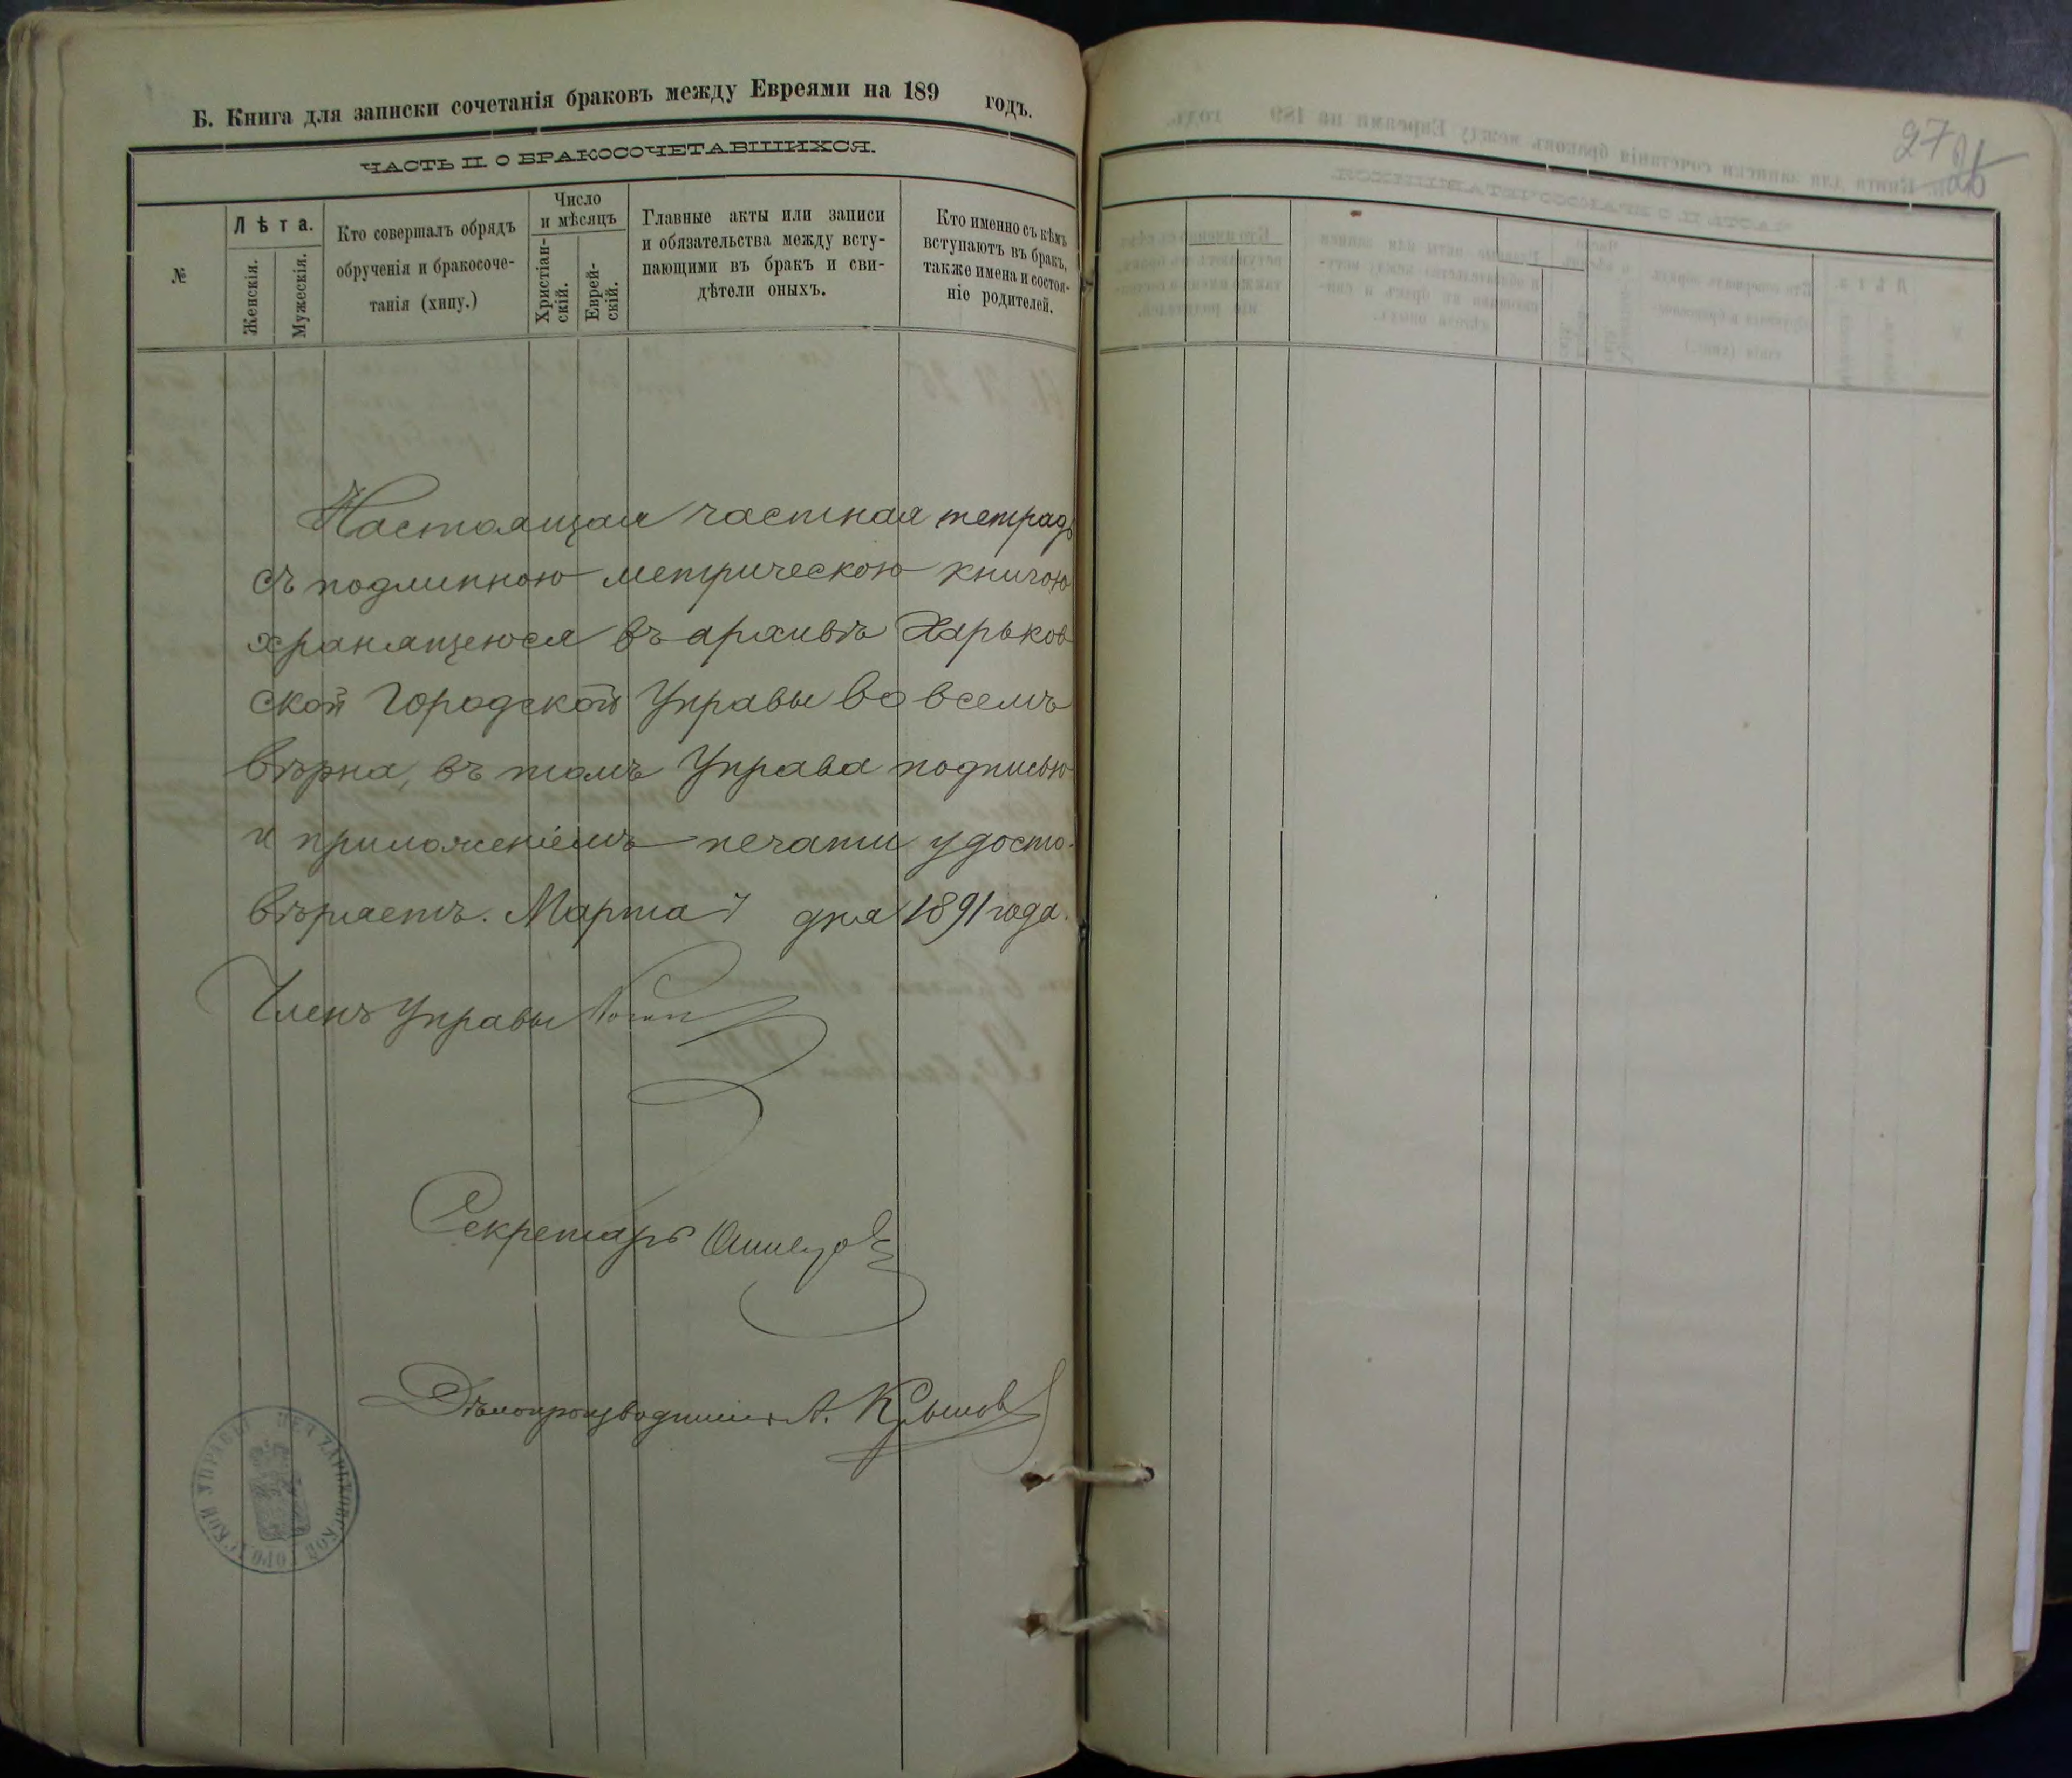 Б. Книга для записки сочетанія браковъ между Евреями на 189 годъ.
ЧАСТЬ II. О БРАКОСОЧЕТАВШИХСЯ.
№
Лѣта.
Женскія.
Мужескія.
Кто совершалъ обрядъ
обрученія и бракосоче-
танія (хипу.)
Число
и мѣсяцъ
Христіан-
скій.
Еврей-
скій.
Главные акты или записи
и обязательства между всту-
пающими въ бракъ и сви-
дѣтели оныхъ.
Кто именно съ кѣмъ
вступаютъ въ бракъ,
также имена и состоя-
ніе родителей.
Настоящая частная тетрадь
съ подлинною метрическою книгою
хранящеюся въ архивѣ Харьков
ской Городской Управы во всемъ
вѣрна, въ томъ Управа подписью
и приложеніемъ печати удосто-
вѣряетъ. Марта 7 дня 1891 года.
Членъ Управы
Секретарь
Дѣлопроизводитель А.
ХАРЬКОВСКОЙ ГОРОДСКОЙ УПРАВЫ
27
26